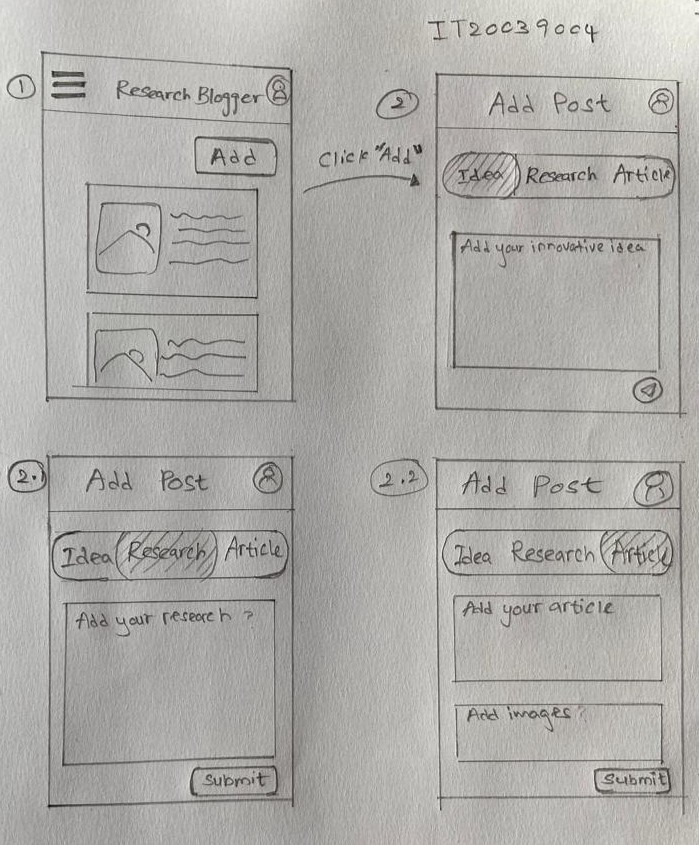 IT20039004
1
Research Blogger
Add
Click "Add"
2
Add Post
Idea Research Article
Add your innovative idea
2.1
Add Post
Idea Research Article
Add your research ?
Submit
2.2
Add Post
Idea Research Article
Add your article
Add images ?
Submit